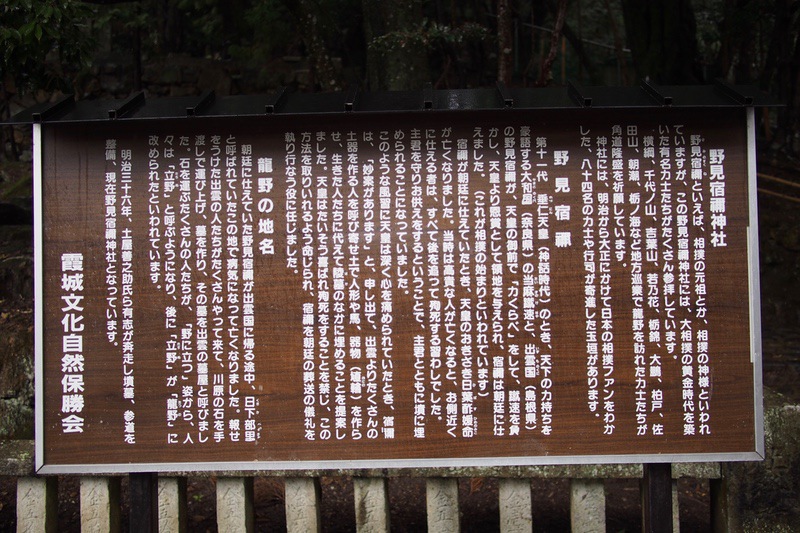 野見宿禰神社
野見宿禰といえば、相撲の元祖とか、相撲の神様といわれ
ていますが、この野見宿禰神社には、大相撲の黄金時代を築
いた有名力士たちがたくさん参拝しています。
横綱、千代ノ山、吉葉山、若乃花、栃錦、大鵬、柏戸、佐
田山、朝潮、栃ノ海など地方巡業で龍野を訪れた力士たちが
角道隆盛を祈願しています。
神社には、明治から大正にかけて日本の相撲ファンをわか
した、八十四名の力士や行司が寄進した玉垣があります。
野見宿禰
第十一代 垂仁天皇（神話時代）のとき、天下の力持ちを
豪語する大和国（奈良県）の当麻蹴速と、出雲国（島根県）
の野見宿禰が、天皇の御前で「力くらべ」をして、蹴速を負
かし、天皇より恩賞として領地を与えられ、宿禰は朝廷に仕
えました。（これが相撲の始まりといわれています）
宿禰が朝廷に仕えていたとき、天皇のおきさき日葉酢媛命
が亡くなりました。当時は高貴な人が亡くなると、お側近く
に仕える者は、すべて後を追って殉死する習わしでした。
主君を守りお供えをするということで、主君とともに墳に埋
められることになっていました。
このような風習に天皇は深く心を痛められていたとき、宿禰
は、「妙案があります」と、申し出て、出雲よりたくさんの
土器を作る人を呼び寄せ土で人形や馬、器物（埴輪）を作ら
せ、生きた人たちに代えて陵墓のなかに埋めることを提案し
ました。天皇はたいそう喜ばれ殉死をすることを禁じ、この
方法を取りいれるよう命じられ、宿禰を朝廷の葬送の儀礼を
執り行なう役に任じました。
龍野の地名
朝廷に仕えていた野見宿禰が出雲国に帰る途中、日下部里
と呼ばれていたこの地で病気になって亡くなりました。報せ
をうけた出雲の人たちがたくさんやって来て、川原の石を手
渡しで運び上げ、墓を作り、その墓を出雲の墓屋と呼びまし
た。石を運ぶたくさんの人たちが、「野に立つ」姿から、人
々は「立野」と呼ぶようになり、後に「立野」が「龍野」に
改められたといわれています。
明治三十六年、土屋善之助氏ら有志が奔走し墳墓、参道を
整備、現在野見宿禰神社となっています。
霞城文化自然保勝会